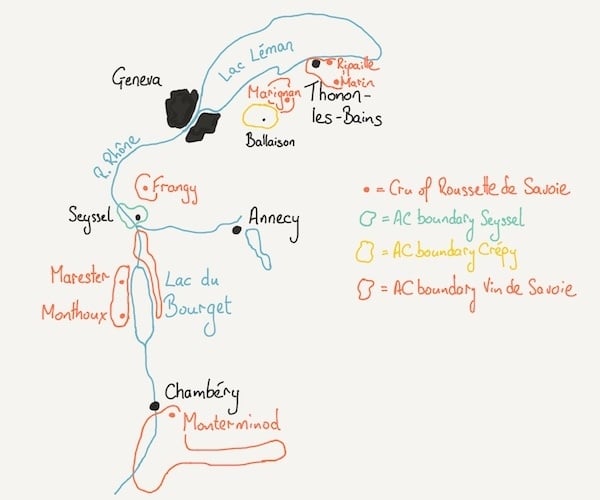 Lac Léman
Geneva
Ripaille
Marin
Marignan
Thonon-
les-Bains
Ballaison
R. Rhône
Frangy
Seyssel
Annecy
Marester
Monthoux
Lac du
Bourget
Chambéry
Monterminod
= Cru of Roussette de Savoie
= AC boundary Seyssel
= AC boundary Crépy
= AC boundary Vin de Savoie